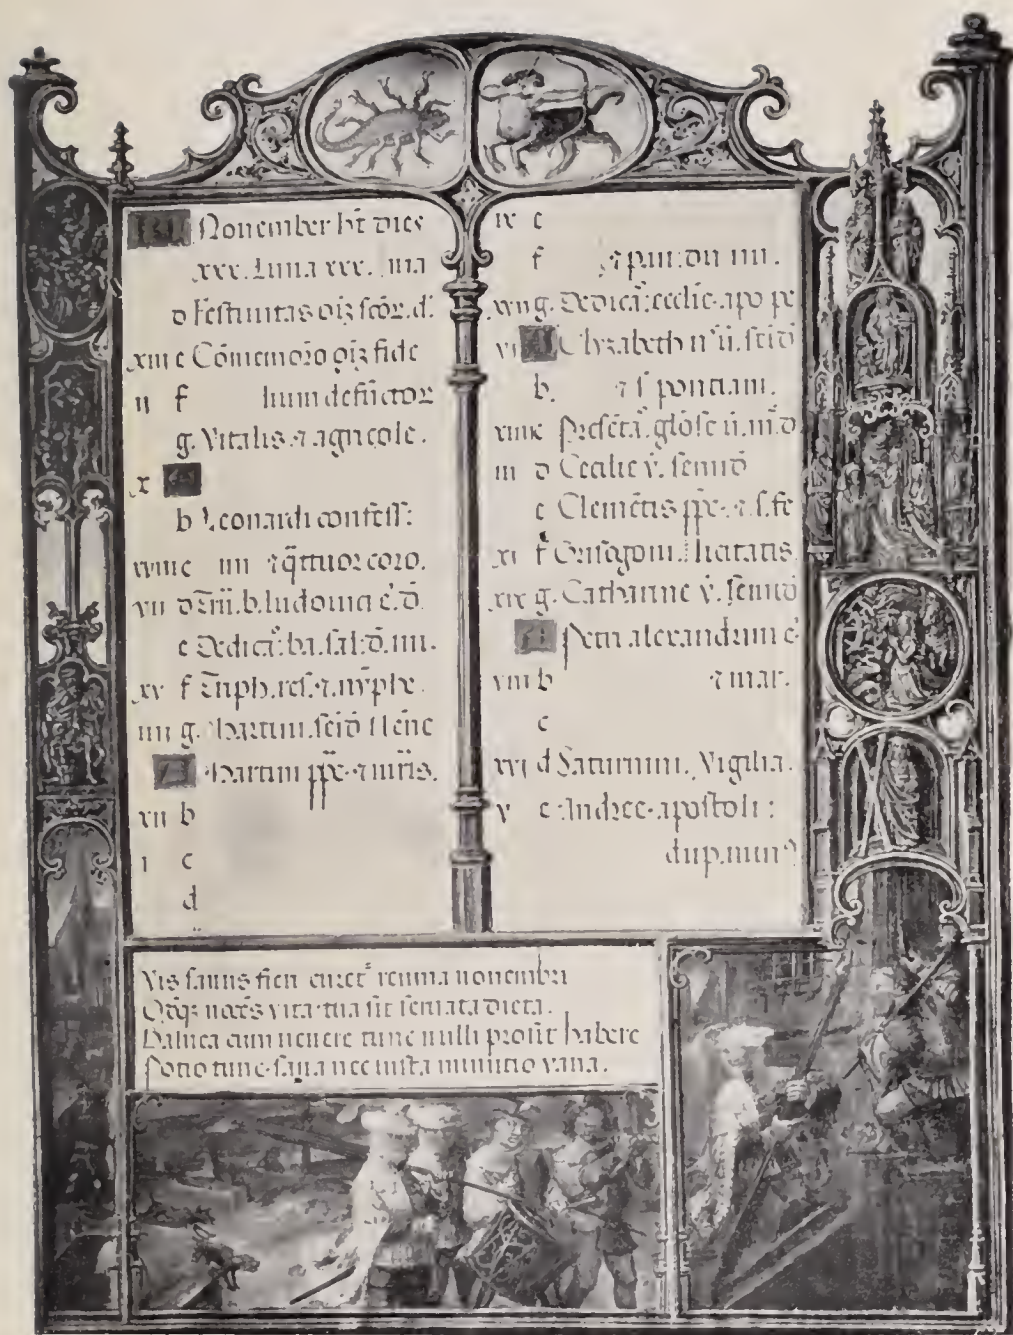 KL Nouember hr̄ dies
xxx. Luna xxx.
d Festiuitas oīʒ scōr. d.
xiii e Cōmemorō oīʒ fide
ii f lium defūctor
g. Vitalis ⁊ agricole.
x A
b Leonardi confess:
xviii c iiii ⁊ q̄ttuor coro.
vii d b. ludouici
e Dedicā. ba. sal. d. iiii.
xv f Triph. res. ⁊ nȳphe.
iiii g. Martini. Mene
A Martini pp̄e ⁊ mr̄is.
xii b
i c
d
ix e
f
xvii g. Dedicā. ecclie. apo pe
vi A Elyzabeth
b. ⁊ s̄ ponciani.
xiiii c Presētā. gl̄ose
iii d Cecilie v̄.
e Clemētis pp̄e. ⁊. s. fe
xi f Grisogoni. licitatis.
xix g. Catharine v̄.
A Petri alexandrini
viii b ⁊ mar.
c
xvi d Saturnini. Vigilia.
v e Andree. apostoli:
dup.
Vis sanus fieri curet̄ reuma nouembri
vita tua sit seruata dieta.
Balnea cum uenere tunc nulli prosit habere
Potio tunc sana nec ista minutio vana.